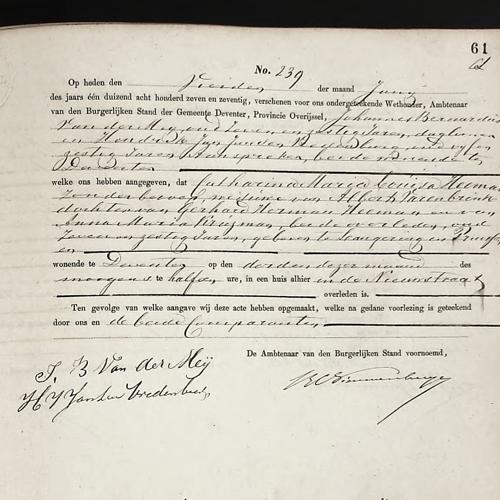 61
61
No. 239
Op heden den Vierden der maand Junij
des jaars één duizend acht honderd zeven en zeventig, verschenen voor ons ondergeteekende Wethouder, Ambtenaar
van den Burgerlijken Stand der Gemeente Deventer, Provincie Overijssel, Johannes Bernardus
van der Meij oud zeven en zestig Jaren, daglooner
en Hendrik Jan van oud vijf en
zestig Jaren, aanspreker, beide wonende te
Deventer
welke ons hebben aangegeven, dat Catharina Maria Louisa Heeman
zonder beroep, weduwe van Albert Varenbrink
dochter van Gerhard Herman Heeman en van
Anna Maria Krijsman, beide overleden, oud
zeven en zestig Jaren, geboren te in Pruissen
en
wonende te Deventer op den derden dezer maand des
morgens te half een ure, in een huis alhier in de Nieuwstraat
overleden is.
Ten gevolge van welke aangave wij deze acte hebben opgemaakt, welke na gedane voorlezing is geteekend
door ons en de beide Comparanten
De Ambtenaar van den Burgerlijken Stand voornoemd,
J. B Van der Meij